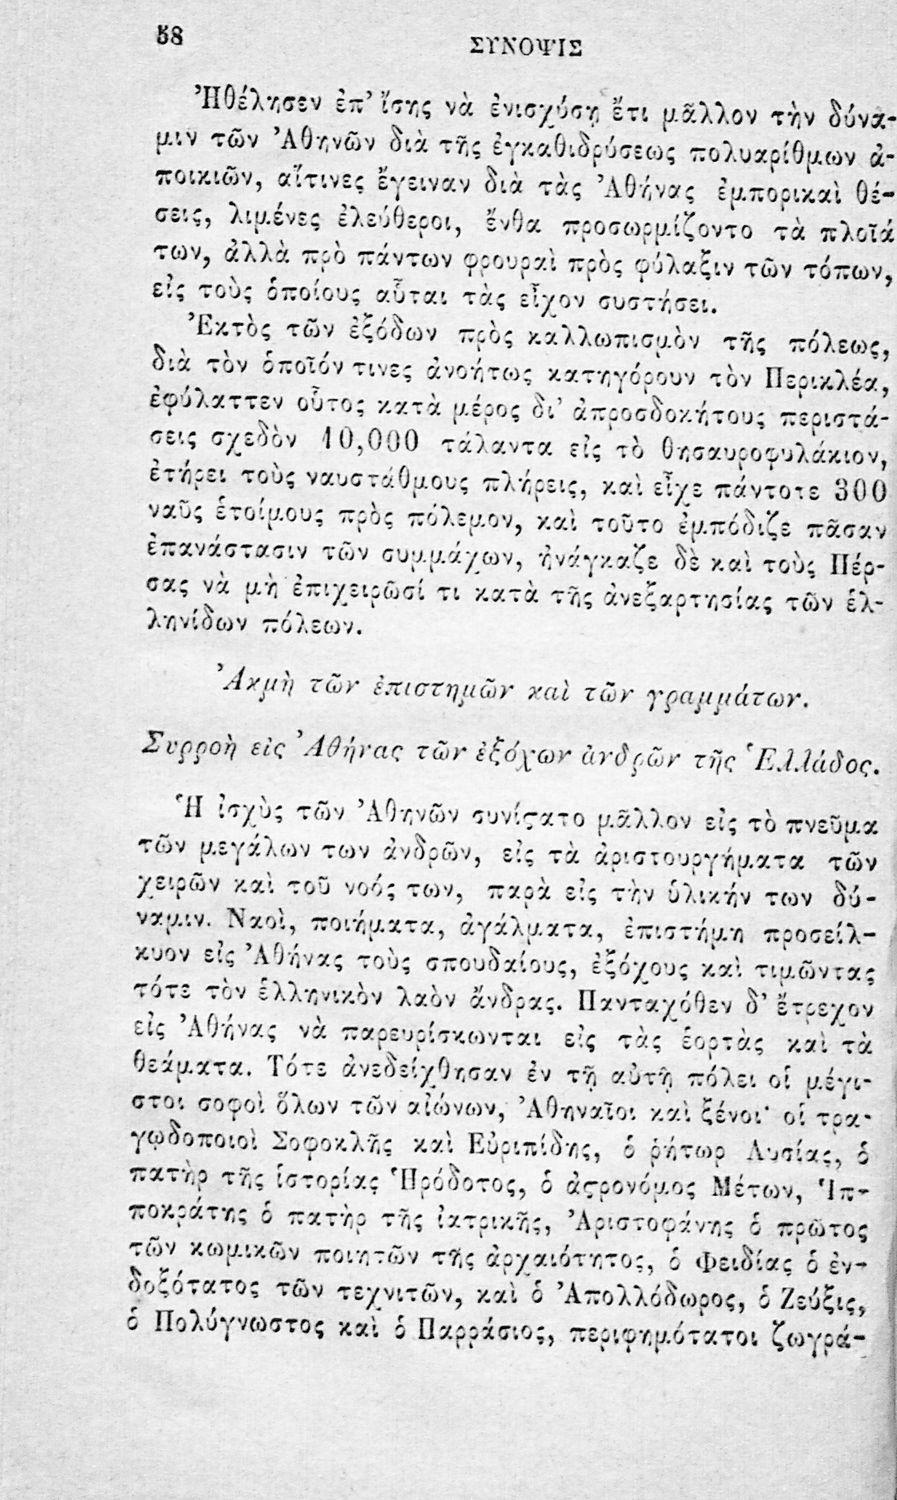 58
ΣΥΝΟΨΙΣ
Ἠθέλησεν ἐπ' ἴσης νὰ ἐνισχύσῃ ἔτι μᾶλλον τὴν δύνα-
μιν τῶν Ἀθηνῶν διὰ τῆς ἐγκαθιδρύσεως πολυαρίθμων ἀ-
ποικιῶν, αἵτινες ἔγειναν διὰ τὰς Ἀθήνας ἐμπορικαὶ θέ-
σεις, λιμένες ἐλεύθεροι, ἔνθα προσωρμίζοντο τὰ πλοῖά
των, ἀλλὰ πρὸ πάντων φρουραὶ πρὸς φύλαξιν τῶν τόπων,
εἰς τοὺς ὁποίους αὗται τὰς εἶχον συστήσει.
Ἐκτὸς τῶν ἐξόδων πρὸς καλλωπισμὸν τῆς πόλεως,
διὰ τὸν ὁποῖόν τινες ἀνοήτως κατηγόρουν τὸν Περικλέα,
ἐφύλαττεν οὗτος κατὰ μέρος δι' ἀπροσδοκήτους περιστά-
σεις σχεδὸν 10,000 τάλαντα εἰς τὸ θησαυροφυλάκιον,
ἐτήρει τοὺς ναυστάθμους πλήρεις, καὶ εἶχε πάντοτε 300
ναῦς ἑτοίμους πρὸς πόλεμον, καὶ τοῦτο ἐμπόδιζε πᾶσαν
ἐπανάστασιν τῶν συμμάχων, ἠνάγκαζε δὲ καὶ τοὺς Πέρ-
σας νὰ μὴ ἐπιχειρῶσί τι κατὰ τῆς ἀνεξαρτησίας τῶν ἑλ-
ληνίδων πόλεων.
Ἀκμὴ τῶν ἐπιστημῶν καὶ τῶν γραμμάτων.
Συρροὴ εἰς Ἀθήνας τῶν ἐξόχων ἀνδρῶν τῆς Ἑλλάδος.
Ἡ ἰσχὺς τῶν Ἀθηνῶν συνίϛατο μᾶλλον εἰς τὸ πνεῦμα
τῶν μεγάλων των ἀνδρῶν, εἰς τὰ ἀριστουργήματα τῶν
χειρῶν καὶ τοῦ νοός των, παρὰ εἰς τὴν ὑλικήν των δύ-
ναμιν. Ναοὶ, ποιήματα, ἀγάλματα, ἐπιστήμη προσείλ-
κυον εἰς Ἀθήνας τοὺς σπουδαίους, ἐξόχους καὶ τιμῶντας
τότε τὸν ἑλληνικὸν λαὸν ἄνδρας. Πανταχόθεν δ' ἔτρεχον
εἰς Ἀθήνας νὰ παρευρίσκωνται εἰς τὰς ἑορτὰς καὶ τὰ
θεάματα. Τότε ἀνεδείχθησαν ἐν τῇ αὐτῇ πόλει οἱ μέγι-
στοι σοφοὶ ὅλων τῶν αἰώνων, Ἀθηναῖοι καὶ ξένοι· οἱ τρα-
γῳδοποιοὶ Σοφοκλῆς καὶ Εὐριπίδης, ὁ ῥήτωρ Λυσίας, ὁ
πατὴρ τῆς ἱστορίας Ἡρόδοτος, ὁ ἀϛρονόμος Μέτων, Ἱπ-
ποκράτης ὁ πατὴρ τῆς ἰατρικῆς, Ἀριστοφάνης ὁ πρῶτος
τῶν κωμικῶν ποιητῶν τῆς ἀρχαιότητος, ὁ Φειδίας ὁ ἐν-
δοξότατος τῶν τεχνιτῶν, καὶ ὁ Ἀπολλόδωρος, ὁ Ζεύξις,
ὁ Πολύγνωστος καὶ ὁ Παρράσιος, περιφημότατοι ζωγρά-